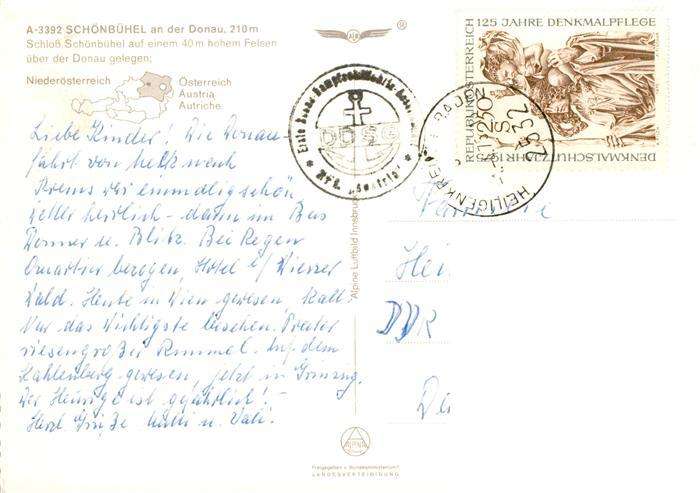 A-3392 SCHÖNBÜHEL an der Donau, 210 m
Schloß Schönbühel auf einem 40 m hohem Felsen
über der Donau gelegen;
Niederösterreich
Österreich
Austria
Autriche
Liebe Kinder! Die Donau
fahrt von Melk nach
Krems war einmalig schön
Wetter herrlich – dann im Bus
Donner u. Blitz. Bei Regen
Quartier bezogen, Hotel i/ Wiener
Wald. Heute in Wien gewesen, kalt.
Nur das Wichtigste besehen. Prater
riesengroßer Rummel. Auf dem
Kahlenberg gewesen, jetzt in Grinzing.
Der Heurige ist gefährlich! –
Herzl Grüße Mutti u. Vati.
Alpine Luftbild Innsbruck
Erste Donau-Dampfschiffahrts-Gesellschaft
DDSG
125 JAHRE DENKMALPFLEGE
REPUBLIK ÖSTERREICH
S 2.50
DENKMALSCHUTZJAHR 1975
HEILIGENKREUZ
2532
Familie
Hei
DDR
De
Freigegeben v. Bundesministerium f.
LANDESVERTEIDIGUNG